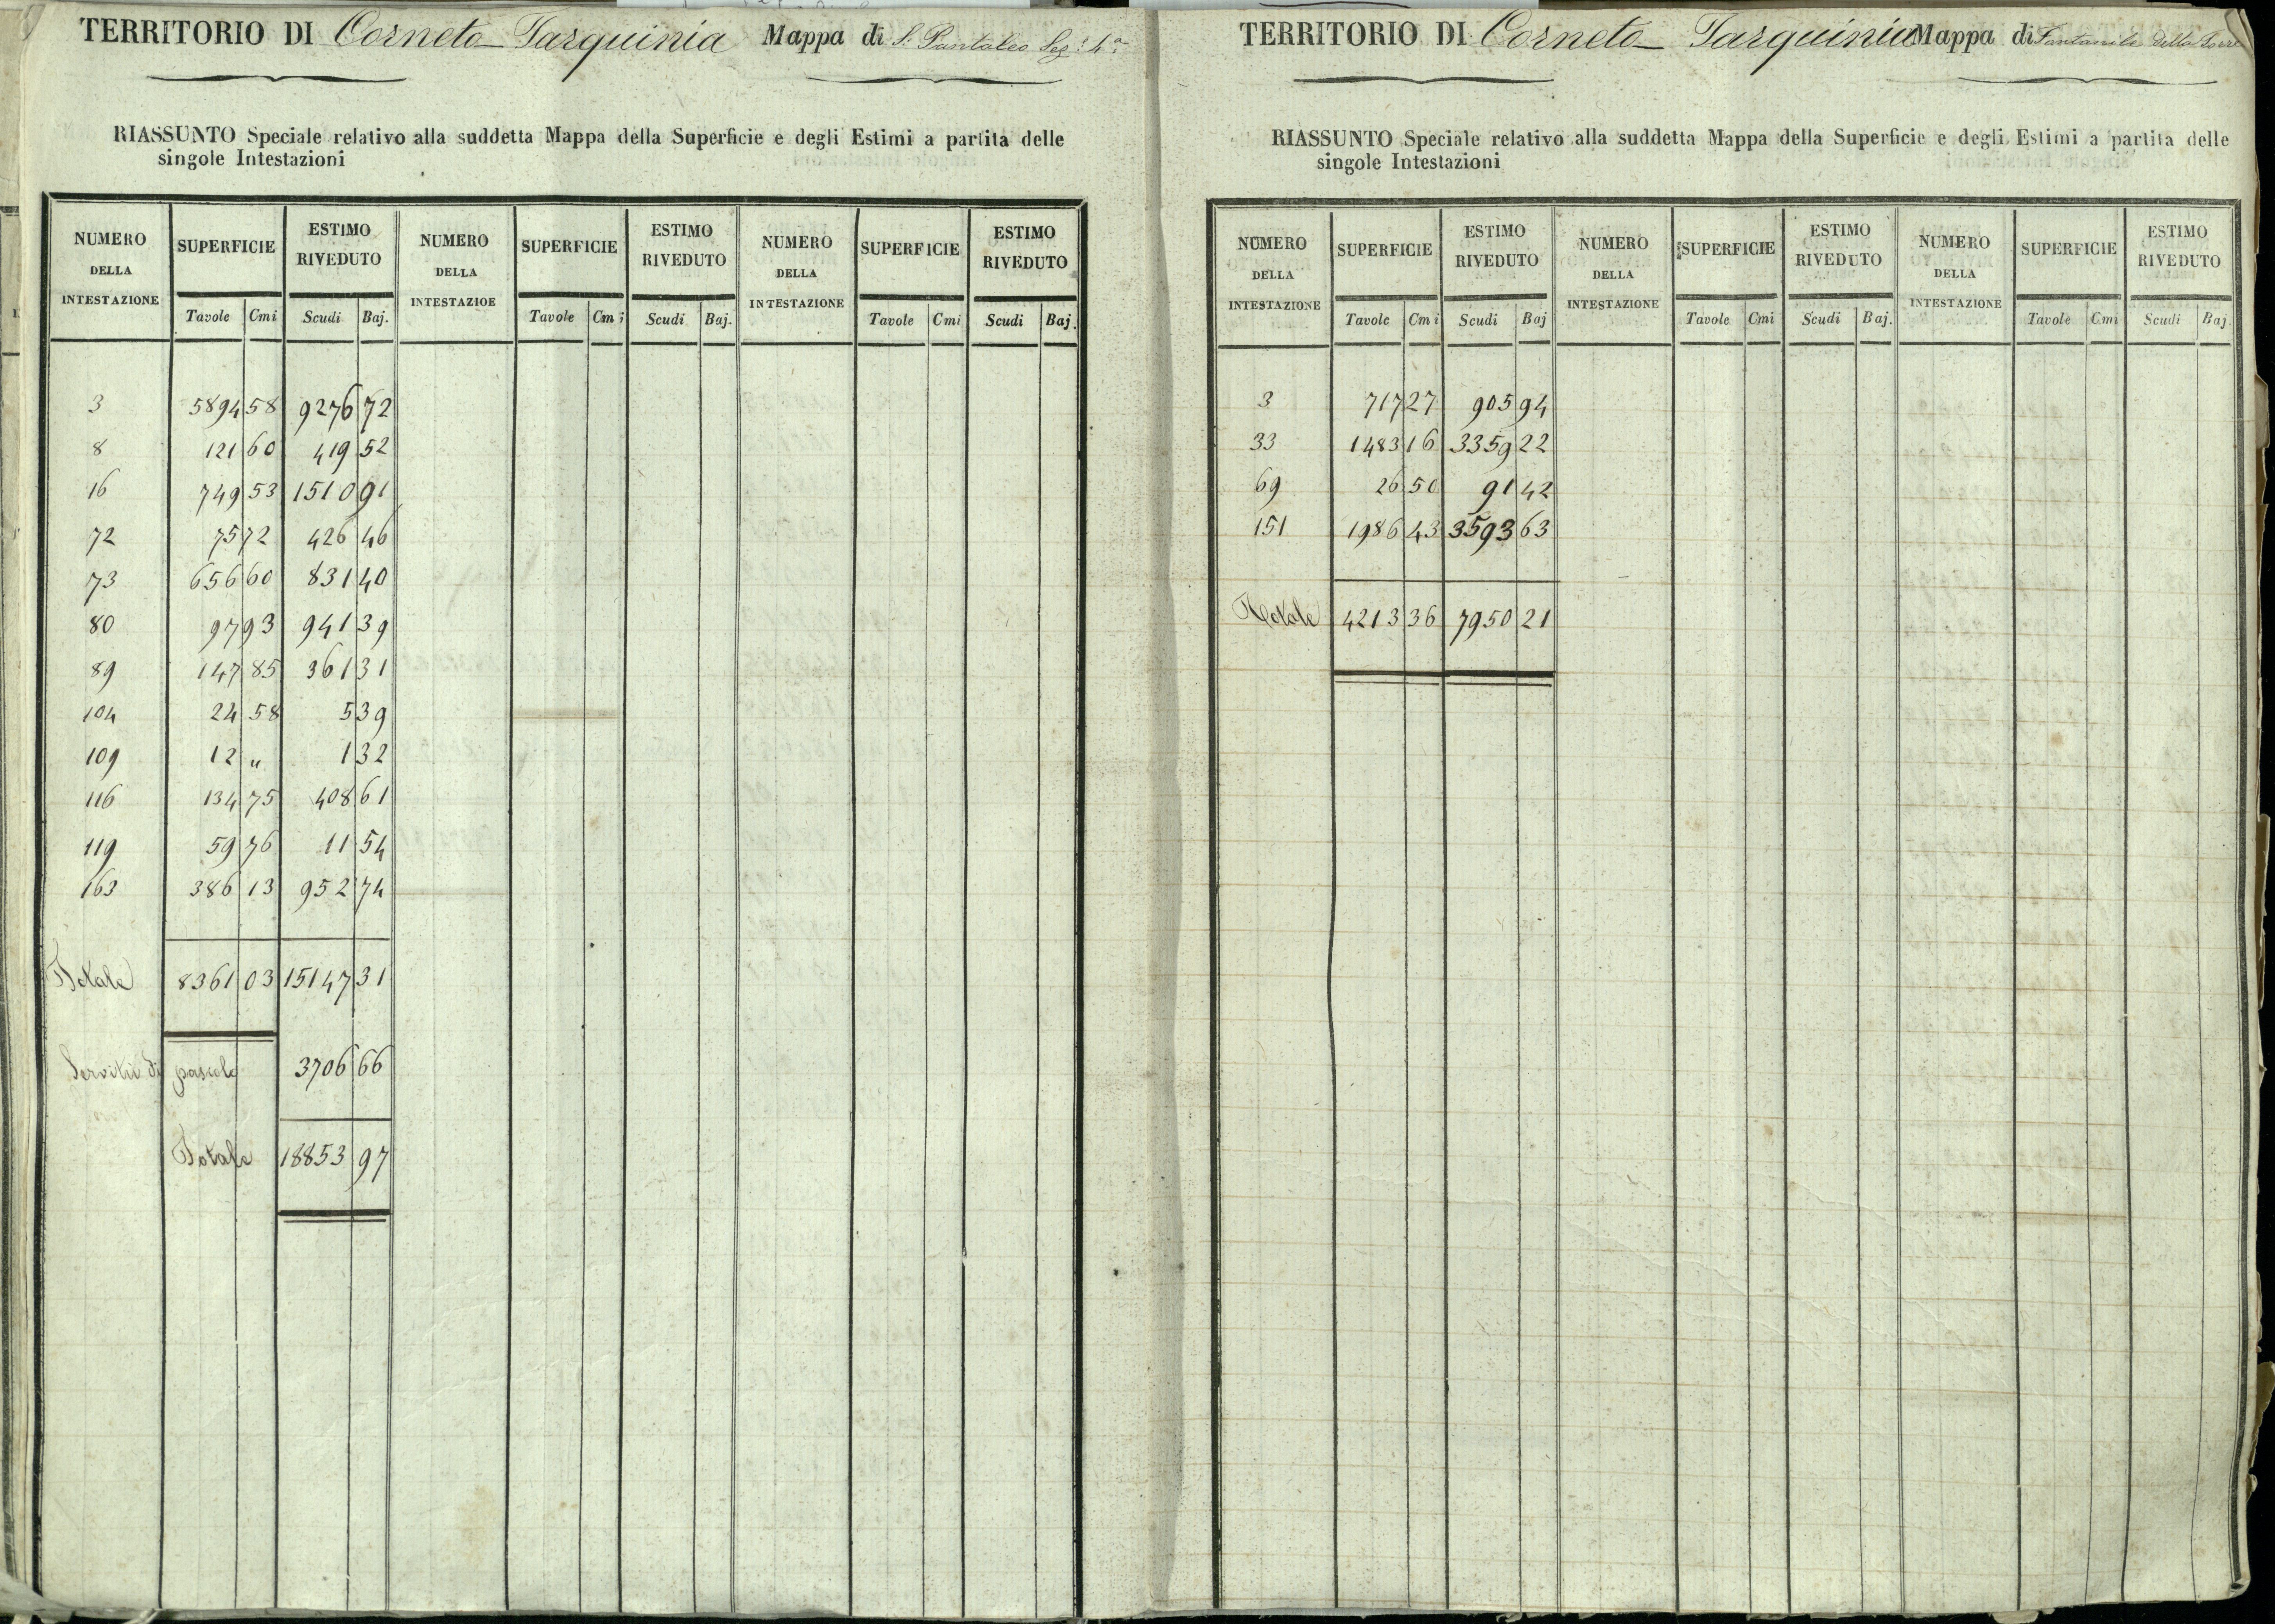 TERRITORIO DI Corneto Tarquinia Mappa di S. Pantaleo Sez. 4a
RIASSUNTO Speciale relativo alla suddetta Mappa della Superficie e degli Estimi a partita delle
singole Intestazioni
NUMERO DELLA INTESTAZIONE SUPERFICIE ESTIMO RIVEDUTO NUMERO DELLA INTESTAZIOE SUPERFICIE ESTIMO RIVEDUTO NUMERO DELLA INTESTAZIONE SUPERFICIE ESTIMO RIVEDUTO
Tavole Cmi Scudi Baj. Tavole Cmi Scudi Baj. Tavole Cmi Scudi Baj.
3 5894 58 9276 72
8 121 60 419 52
16 749 53 1510 91
72 75 72 426 46
73 656 60 831 40
80 97 93 941 39
89 147 85 361 31
104 24 58 5 39
109 12 " 1 32
116 134 75 408 61
119 59 76 11 54
163 386 13 952 74
Totale 8361 03 15147 31
Servitù di pascolo 3706 66
Totale 18853 97
TERRITORIO DI Corneto Tarquinia Mappa di Fontanile della Torre
RIASSUNTO Speciale relativo alla suddetta Mappa della Superficie e degli Estimi a partita delle
singole Intestazioni
NUMERO DELLA INTESTAZIONE SUPERFICIE ESTIMO RIVEDUTO NUMERO DELLA INTESTAZIONE SUPERFICIE ESTIMO RIVEDUTO NUMERO DELLA INTESTAZIONE SUPERFICIE ESTIMO RIVEDUTO
Tavole Cmi Scudi Baj Tavole Cmi Scudi Baj. Tavole Cmi Scudi Baj.
3 717 27 905 94
33 1483 16 3359 22
69 26 50 91 42
151 1986 43 3593 63
Totale 4213 36 7950 21